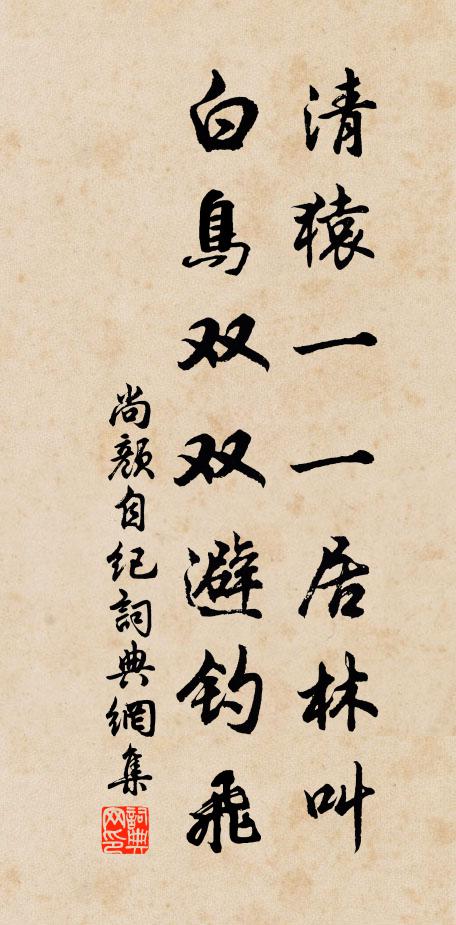 清猿一一居林叫
白鳥双双避钓飛
尚顏自纪詞典網集
詞典网印